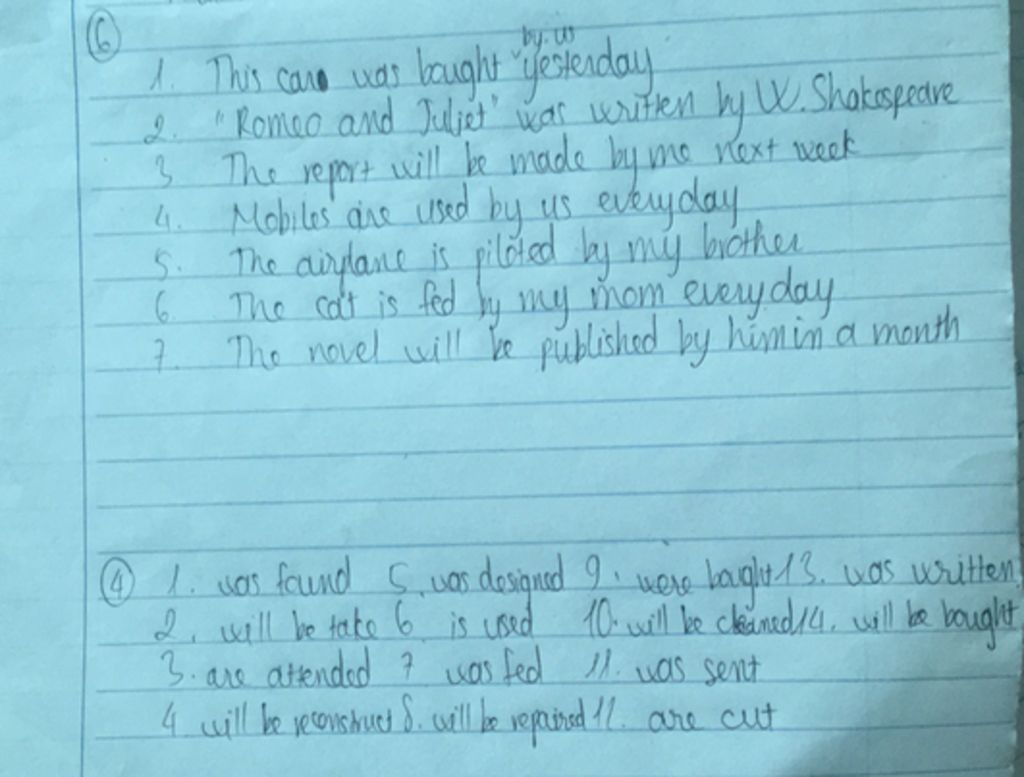 6
by us
1. This car was bought yesterday
2. "Romeo and Juliet" was written by W. Shakespeare
3 The report will be made by me next week
4. Mobiles are used by us everyday
5. The airplane is piloted by my brother
6 The cat is fed by my mom everyday
7. The novel will be published by him in a month
4 1. was found 5. was designed 9. were bought 13. was written
2. will be take 6 is used 10. will be cleaned 14. will be bought
3. are attended 7 was fed 11. was sent
4 will be reconstruct 8. will be repaired 11. are cut